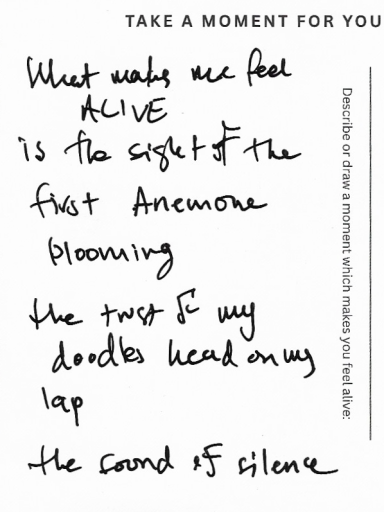 TAKE A MOMENT FOR YOU
Describe or draw a moment which makes you feel alive:
What makes me feel
ALIVE
is the sight of the
first Anemone
blooming
the trust of my
doodles head on my
lap
the sound of silence